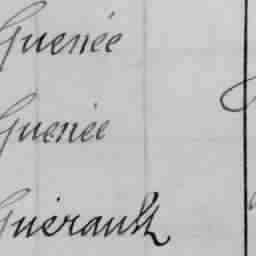 Guenée
Guenée
Guérault